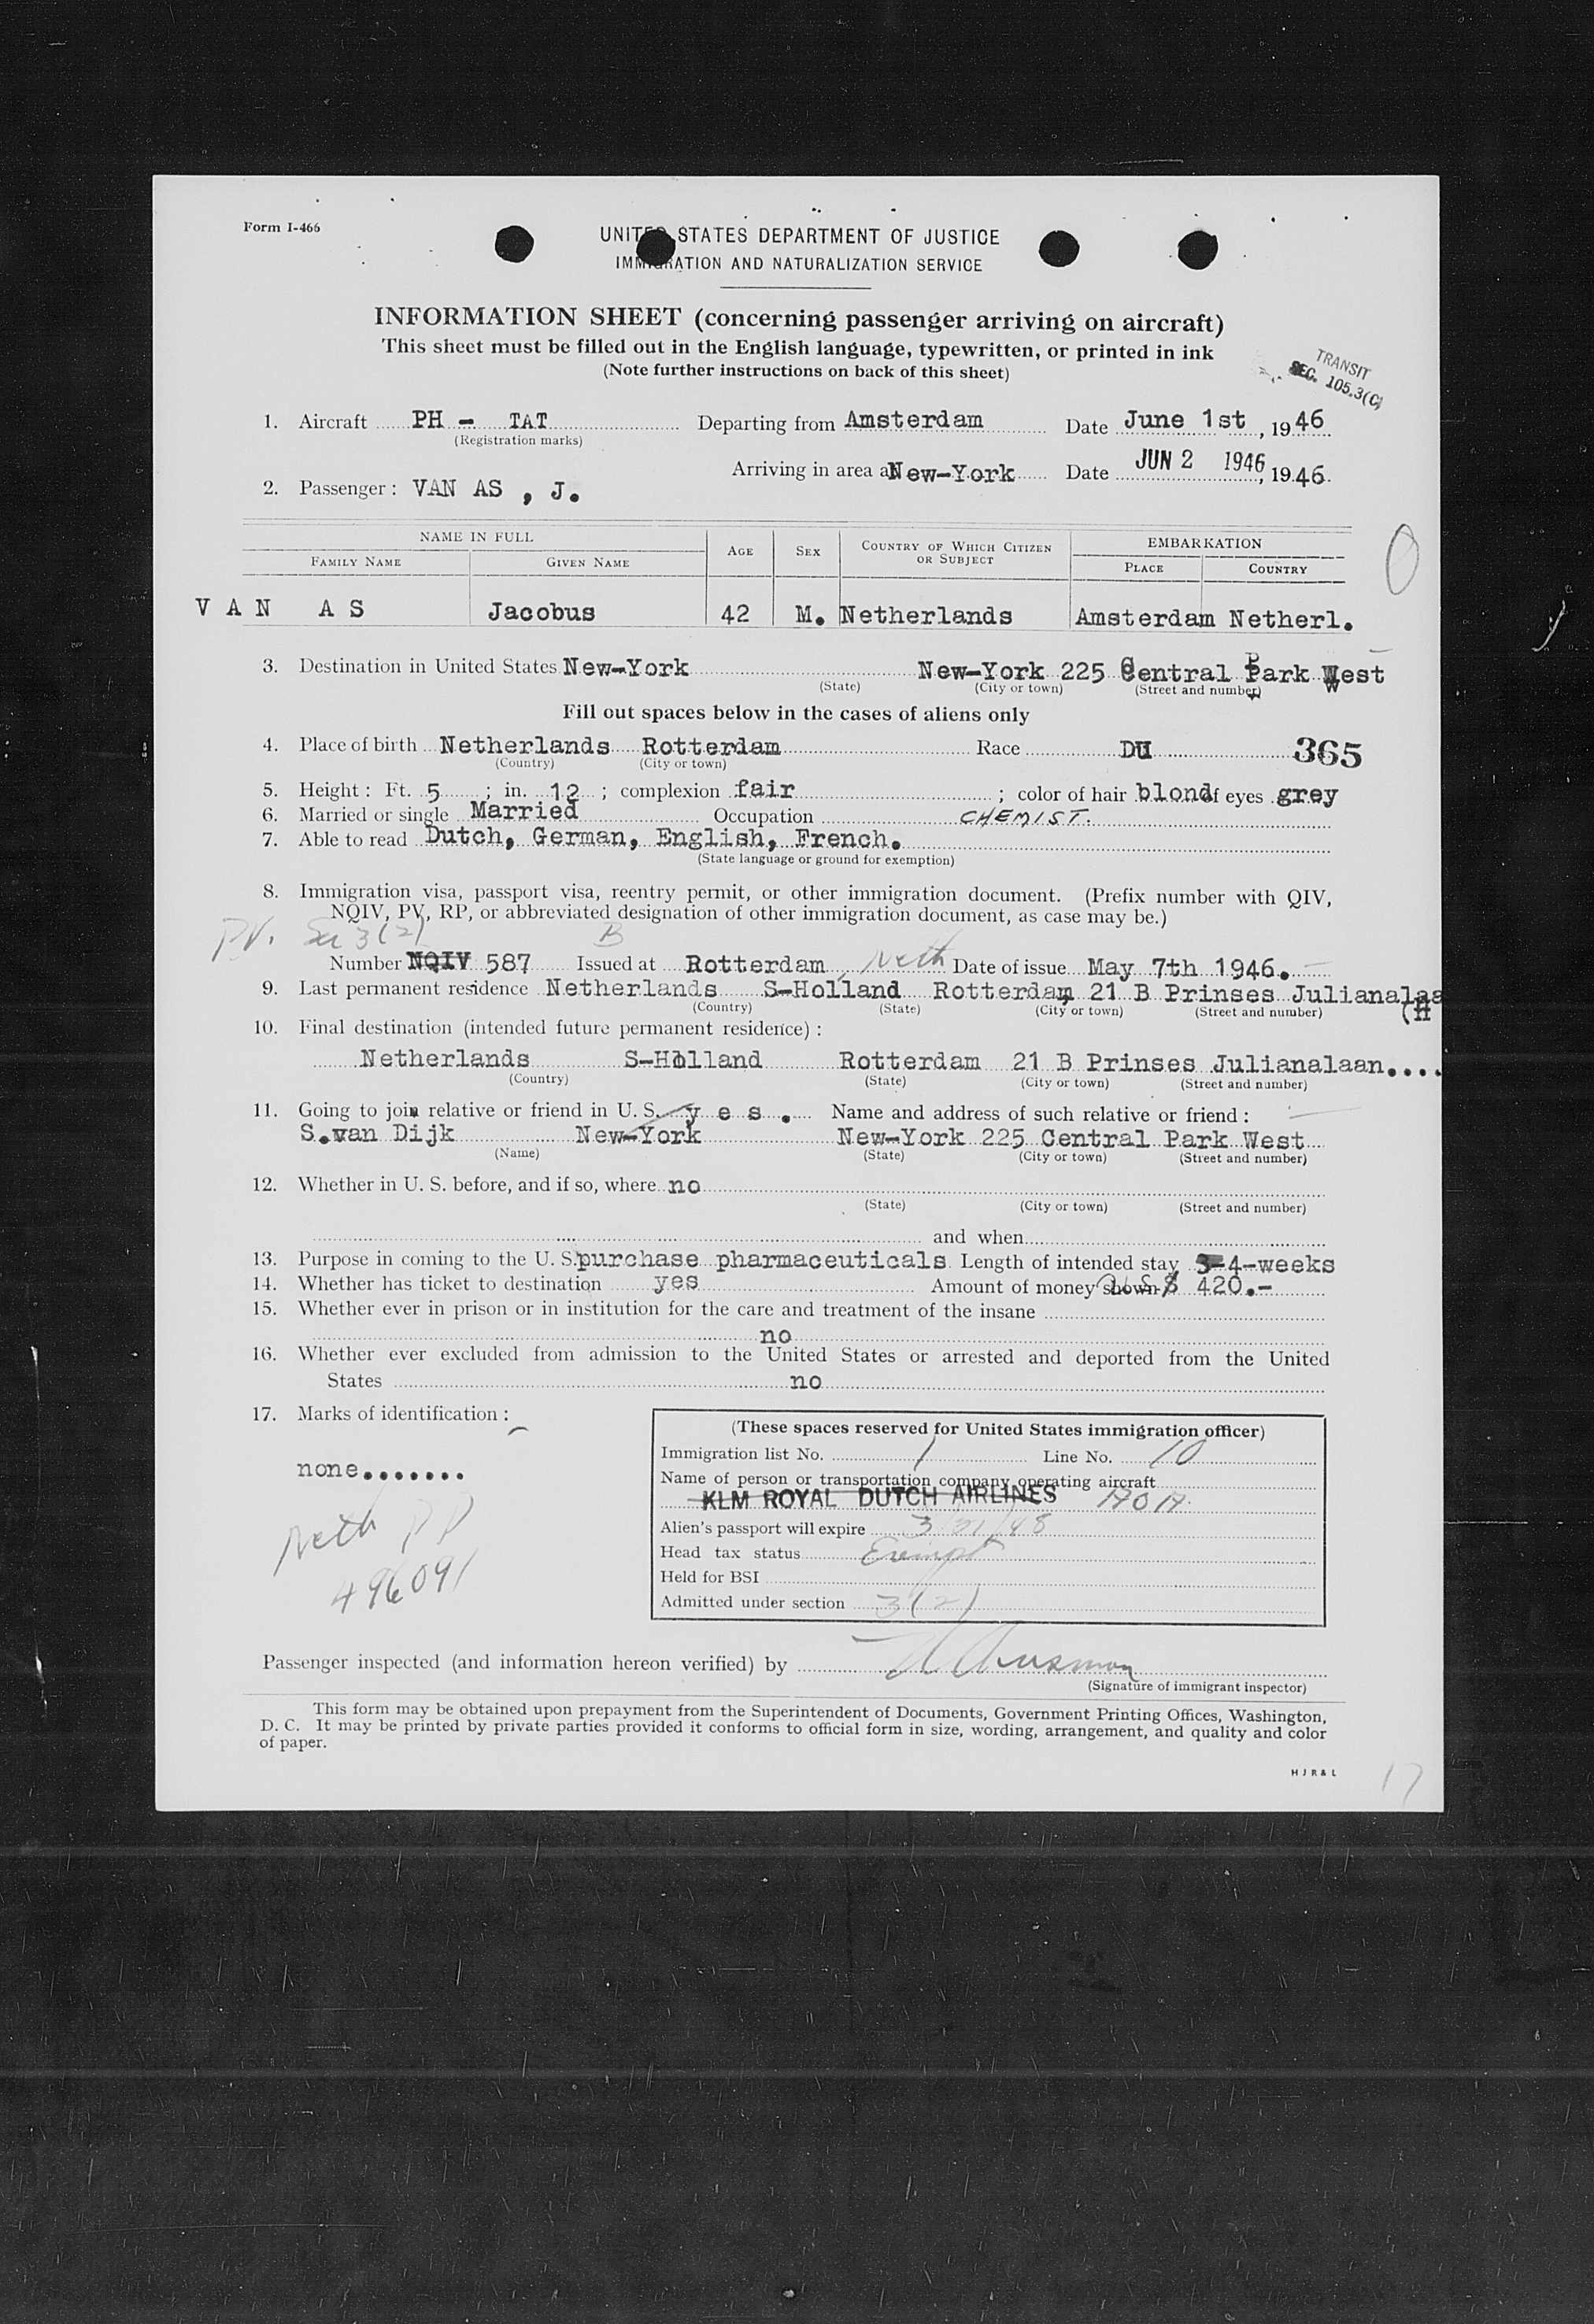 Form I-466
UNITED STATES DEPARTMENT OF JUSTICE
IMMIGRATION AND NATURALIZATION SERVICE
INFORMATION SHEET (concerning passenger arriving on aircraft)
This sheet must be filled out in the English language, typewritten, or printed in ink
(Note further instructions on back of this sheet)
TRANSIT
SEC. 105.3(C)
1. Aircraft PH - TAT Departing from Amsterdam Date June 1st, 1946
(Registration marks)
Arriving in area at New-York Date JUN 2 1946, 1946.
2. Passenger: VAN AS , J.
NAME IN FULL AGE SEX COUNTRY OF WHICH CITIZEN OR SUBJECT EMBARKATION
FAMILY NAME GIVEN NAME PLACE COUNTRY
VAN AS Jacobus 42 M. Netherlands Amsterdam Netherl.
3. Destination in United States New-York New-York 225 Central Park West
(State) (City or town) (Street and number)
Fill out spaces below in the cases of aliens only
4. Place of birth Netherlands Rotterdam Race DU 365
(Country) (City or town)
5. Height: Ft. 5; in. 12; complexion fair; color of hair blond of eyes grey
6. Married or single Married Occupation CHEMIST.
7. Able to read Dutch, German, English, French.
(State language or ground for exemption)
8. Immigration visa, passport visa, reentry permit, or other immigration document. (Prefix number with QIV,
NQIV, PV, RP, or abbreviated designation of other immigration document, as case may be.)
PV. Sec 3(2) B
Number NQIV 587 Issued at Rotterdam, Neth Date of issue May 7th 1946.
9. Last permanent residence Netherlands S-Holland Rotterdam 21 B Prinses Julianalaa
(Country) (State) (City or town) (Street and number)
10. Final destination (intended future permanent residence):
Netherlands S-Holland Rotterdam 21 B Prinses Julianalaan....
(Country) (State) (City or town) (Street and number)
11. Going to join relative or friend in U. S. yes. Name and address of such relative or friend:
S.van Dijk New-York New-York 225 Central Park West
(Name) (State) (City or town) (Street and number)
12. Whether in U. S. before, and if so, where no
(State) (City or town) (Street and number)
and when
13. Purpose in coming to the U. S. purchase pharmaceuticals Length of intended stay 3-4-weeks
14. Whether has ticket to destination yes Amount of money shown U.S. $ 420.-
15. Whether ever in prison or in institution for the care and treatment of the insane
no
16. Whether ever excluded from admission to the United States or arrested and deported from the United
States no
17. Marks of identification:
none.......
Neth PP
496091
(These spaces reserved for United States immigration officer)
Immigration list No. 1 Line No. 10
Name of person or transportation company operating aircraft
KLM ROYAL DUTCH AIRLINES
Alien's passport will expire 3/31/48
Head tax status Exempt
Held for BSI
Admitted under section 3(2)
Passenger inspected (and information hereon verified) by
(Signature of immigrant inspector)
This form may be obtained upon prepayment from the Superintendent of Documents, Government Printing Offices, Washington,
D. C. It may be printed by private parties provided it conforms to official form in size, wording, arrangement, and quality and color
of paper.
H J R & L
17